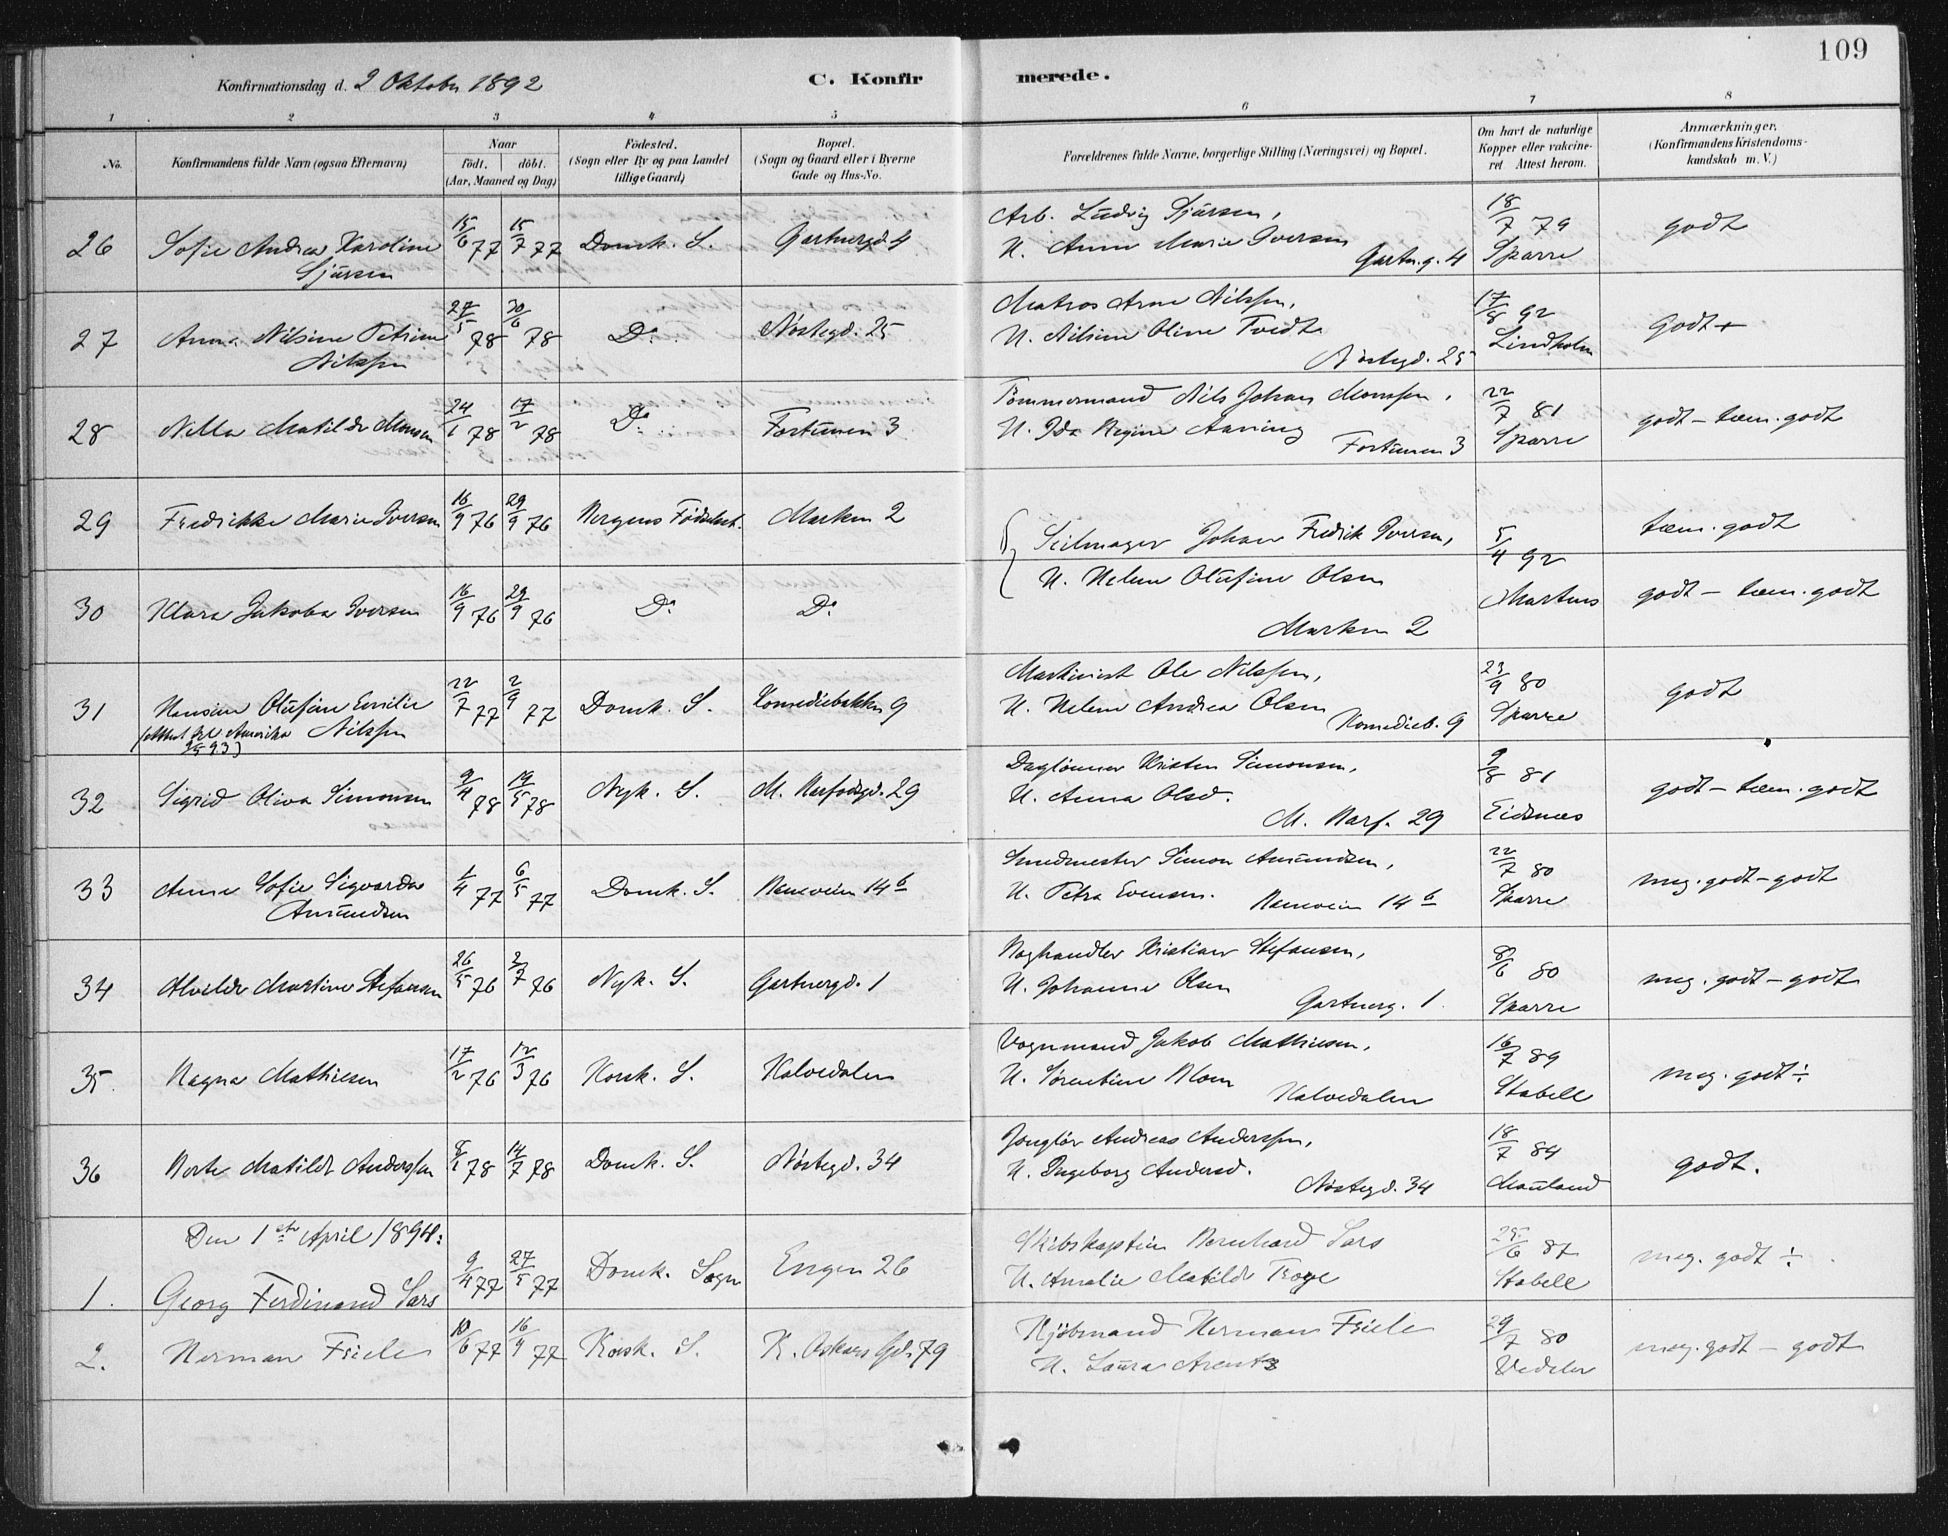 109
Konfirmationsdag d. 2 Oktober 1892
C. Konfirmerede.
1 2 3 4 5 6 7 8
No.
Konfirmandens fulde Navn (ogsaa Efternavn)
Naar
født. døbt.
(Aar, Maaned og Dag)
Fødested.
(Sogn eller By og paa Landet
tillige Gaard)
Bopæl.
(Sogn og Gaard eller i Byerne
Gade og Hus-No.
Forældrenes fulde Navne, borgerlige Stilling (Næringsvei) og Bopæl.
Om havt de naturlige
Kopper eller vakcine-
ret Attest herom.
Anmærkninger.
(Konfirmandens Kristendoms-
kundskab m. V.)
26 Sofie Andrea Karoline 15/6 77 15/7 77 Domk. S. Gartnergd. 4 Arb. Ludvig Sjursen, 18/7 79 godt
Sjursen H. Anne Marie Iversen Gartn.g. 4 Sparre
27 Anna Nilsine Petrine 27/5 78 30/6 78 Do. Nøstegd. 25 Matros Arne Nilssen, 17/8 92 godt +
Nilssen H. Nilsine Oline Tvedt Nøstegd. 25 Lindholm
28 Nilla Matilde Monsen 24/1 78 17/2 78 Do. Fortunen 3 Tømmermand Nils Johan Monssen, 22/7 81 godt – tem. godt
H. Ida Regine Aaning Fortunen 3 Sparre
29 Fredrikke Marie Iversen 16/9 76 29/9 76 Bergens Fødselsst. Marken 2 Seilmager Johan Fredrik Iversen, 5/4 92 tem. godt
30 Klara Jakoba Iversen 16/9 76 29/9 76 Do. Do. H. Helene Olufine Olsen Martens godt – tem. godt
Marken 2
31 Hansine Olufine Emilie 22/7 77 2/9 77 Domk. S. Komediebakken 9 Maskinist Ole Nilssen, 23/9 80 godt
Nilssen H. Helene Andrea Olsen Komedieb. 9 Sparre
(Attest til Amerika 93)
32 Sigrid Oliva Simonsen 9/4 78 19/5 78 Nyk. S. M. Korfodsgd. 29 Dagløner Kristen Simonsen, 9/8 81 godt – tem. godt
H. Anna Olsd. M. Korf. 29 Eidsnes
33 Anna Sofie Sigvarda 1/4 77 6/5 77 Domk. S. Kaneveien 14 b Smedmester Simon Amundsen, 22/7 80 meg. godt – godt
Amundsen H. Petra Evensen. Kaneveien 14 b Sparre
34 Alvilde Martine Stefansen 26/5 76 2/7 76 Nyk. S. Gartnergd. 1 Boghandler Kristian Stefansen, 8/6 80 meg. godt – godt
H. Johanne Olsen Gartnerg. 1. Sparre
35. Ragna Mathiesen 17/2 76 12/3 76 Korsk. S. Kalvedalen Vognmand Jakob Mathiesen, 16/7 89 meg. godt ÷
H. Sørentine Blom Kalvedalen Stabell
36 Berte Matilde Anderssen 8/1 78 14/7 78 Domk. S. Nøstegd. 34 Jonglör Andreas Anderssen, 18/7 84 godt.
H. Ingeborg Andersd. Nøstegd. 34 Mauland
Den 1ste April 1894:
1. Georg Ferdinand Sars 9/4 77 27/5 77 Domk. Sogn Engen 26 Skibskaptein Bernhard Sars 25/6 87 meg. godt ÷
H. Amalie Matilde Troye Stabell
2. Herman Friele 10/6 77 16/9 77 Korsk. S. K. Oskars Gd. 79 Kjøbmand Herman Friele 29/7 80 meg. godt – godt
H. Laura Arentz Vedeler